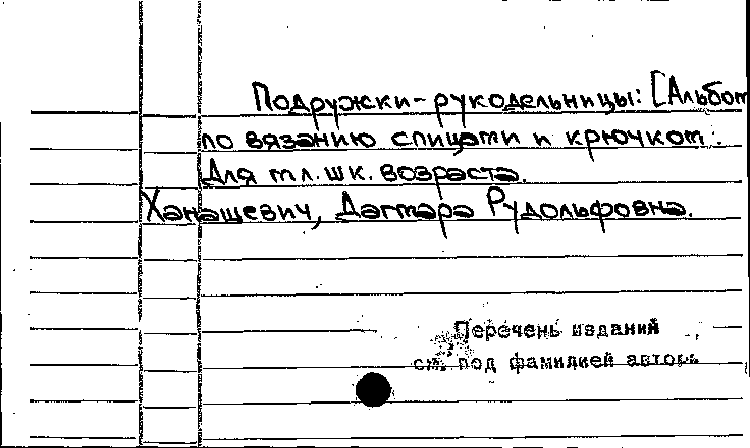 Подружки-рукодельницы: [Альбом
по вязанию спицами и крючком:
Для мл. шк. возраста.
Ханашевич, Дагмара Рудольфовна.
Перечень изданий
см. под фамилией автора